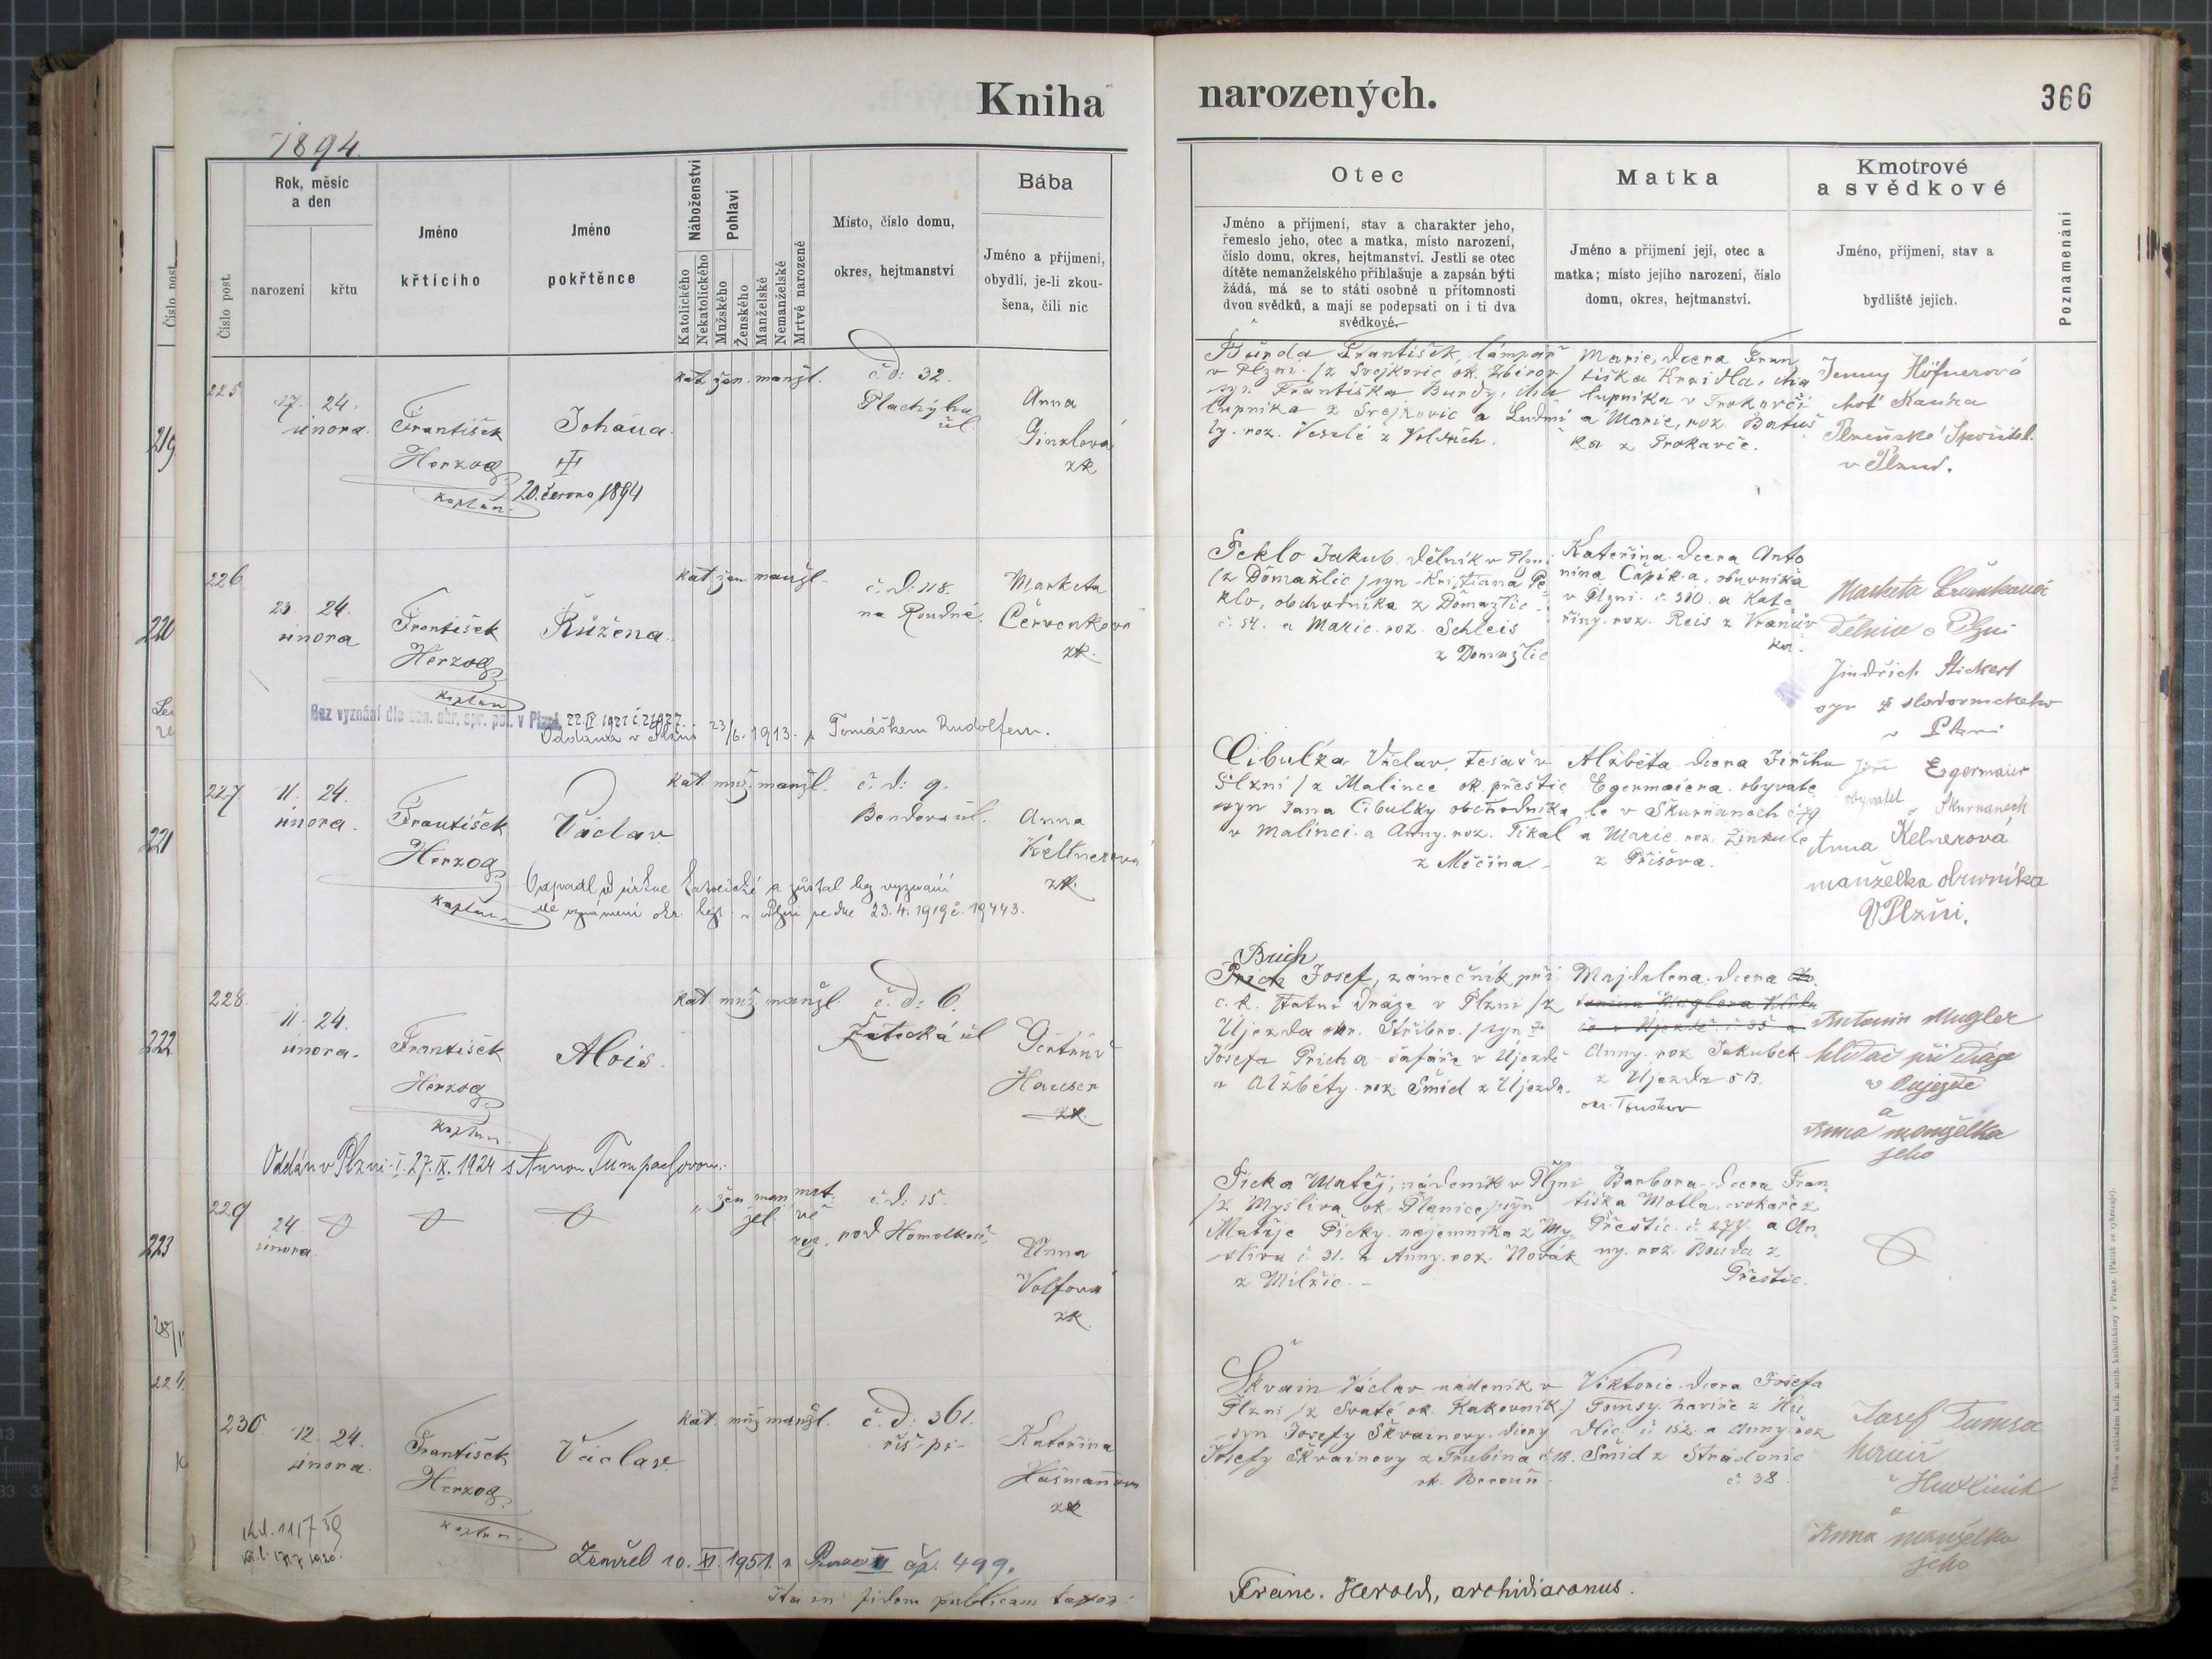 Kniha narozených.
366
1894.
Číslo post.
Rok, měsíc
a den
narození
křtu
Jméno
křtícího
Jméno
pokřtěnce
Náboženství
Katolického
Nekatolického
Pohlaví
Mužského
Ženského
Manželské
Nemanželské
Mrtvě narozené
Místo, číslo domu,
okres, hejtmanství
Bába
Jméno a příjmení,
obydlí, je-li zkou-
šena, čili nic
Otec
Jméno a příjmení, stav a charakter jeho,
řemeslo jeho, otec a matka, místo narození,
číslo domu, okres, hejtmanství. Jestli se otec
dítěte nemanželského přihlašuje a zapsán býti
žádá, má se to státi osobně u přítomnosti
dvou svědků, a mají se podepsati on i ti dva
svědkové.
Matka
Jméno a příjmení její, otec a
matka; místo jejího narození, číslo
domu, okres, hejtmanství.
Kmotrové
a svědkové
Jméno, příjmení, stav a
bydliště jejich.
Poznamenání
219
220
221
222
223
224
225
17. 24.
února.
František
Herzog
kaplan
Johana.
20. června 1894
kat. žen. manžl.
č. d: 32.
Plachýho
ul.
Anna
Ginzlová
zk
Burda František, lampář
v Plzni /z Svejkovic ok. Zbirov/
syn Františka Burdy, cha
lupníka z Svejkovic a Ludmi
ly. roz. Veselé z
Marie, dcera Fran
tiška
lupníka v
a Marie, roz.
ka z
Jenny Höfnerová
choť
v Plzni.
226
23. 24.
února
František
Herzog
kaplan
Růžena.
kat žen manžl.
č. d. 118.
na Roudné.
Marketa
Červenková
zk.
Peklo Jakub. dělník v Plzni
/z Domažlic/ syn Kristiana Pe-
klo, obchodníka z Domažlic
č. 54. a Marie. roz. Schleis
z Domažlic
Kateřina. dcera Anto
nína Čapka, obuvníka
v Plzni. č. 310. a Kate
řiny. roz. Reis z
Marketa
dělnice v Plzni
Jindřich
syn
v Plzni
Bez vyznání dle ozn. okr. spr. pol. v Plzni
Oddána v Plzni 23/6. 1913. s Tomáškem Rudolfem.
227
11. 24.
února.
František
Herzog
kaplan
Václav
kat. muž. manžl.
č. d: 9.
Bendova ul.
Anna
Kellnerová
zk.
Cibulka Václav, tesař v
Plzni /z Malince ok. přeštic
syn Jana Cibulky obchodníka
v Malinci. a Anny. roz. Tikal
z Měčína.
Alžběta dcera Jiřího
Egermaiera. obyvate
le v Škurňanech č 79
a Marie roz. Žinkule
z Příšova.
Jiří Egermaier
obyvatel v Škurnanech
Anna Kelnerová
manželka obuvníka
V Plzni.
Odpadl od církve katolické a zůstal bez vyznání
dle oznámení okr. hejt. v Plzni ze dne 23.4.1919 č. 19443.
228.
11. 24.
února.
František
Herzog
kaplan
Alois.
kat. muž manžl
č. d: 6.
Žatecká ul
Gertrud
Hauser
zk.
Bruch
Prich Josef, zámečník při
c. k. statní Dráze v Plzni /z
Újezda okr. Stříbro. /syn
Josefa Pricha šafáře v Újezdě
a Alžběty. roz. Šmid z Újezda.
Majdalena. dcera
Anny. roz. Jakubek
z Újezda č 13.
okr. Touškov
Antonin Mugler
hlídač při dráze
v Oujezdě
a
Anna manželka
jeho
Oddán v Plzni-I. 27. IX. 1924 s Annou Tumpachovou.
229
24.
února.
žen man mrt.
žel. vě
roz.
č. d. 15.
pod Homolkou,
Anna
Volfová
zk.
Ficka Matěj, nádeník v Plzni
/z Myslíva ok. Planice/ syn
Matěje Ficky. nájemníka z My-
slíva č 31. a Anny. roz. Novák
z Milčic.
Barbora. dcera Fran
tiška Motla. cvokaře z
Přeštic. č. 277. a An-
ny. roz. Bouda z
Přeštic.
230
12. 24.
února.
František
Herzog
kaplan
Václav.
kat. muž manžl.
č. d: 361.
říš. př.
Kateřina
zk
Škvain Václav nádeník v
Plzni /z Svaté ok. Rakovník/
syn Josefy Škvainovy. dcery
Josefy Škvainovy z Trubína č 18.
ok. Beroun.
Viktorie. dcera Josefa
Tomsy. havíře z Hu
dlic. č. 152. a Anny. roz
Šmid z Stradonic
č. 38.
Josef Tumsa
havíř
v Hudlicích
a
Anna manželka
jeho
Zemřel 10. XI. 1951. v Praze II čp. 499.
Ita in fidem publicam testor:
Franc. Herold, archidiaconus.